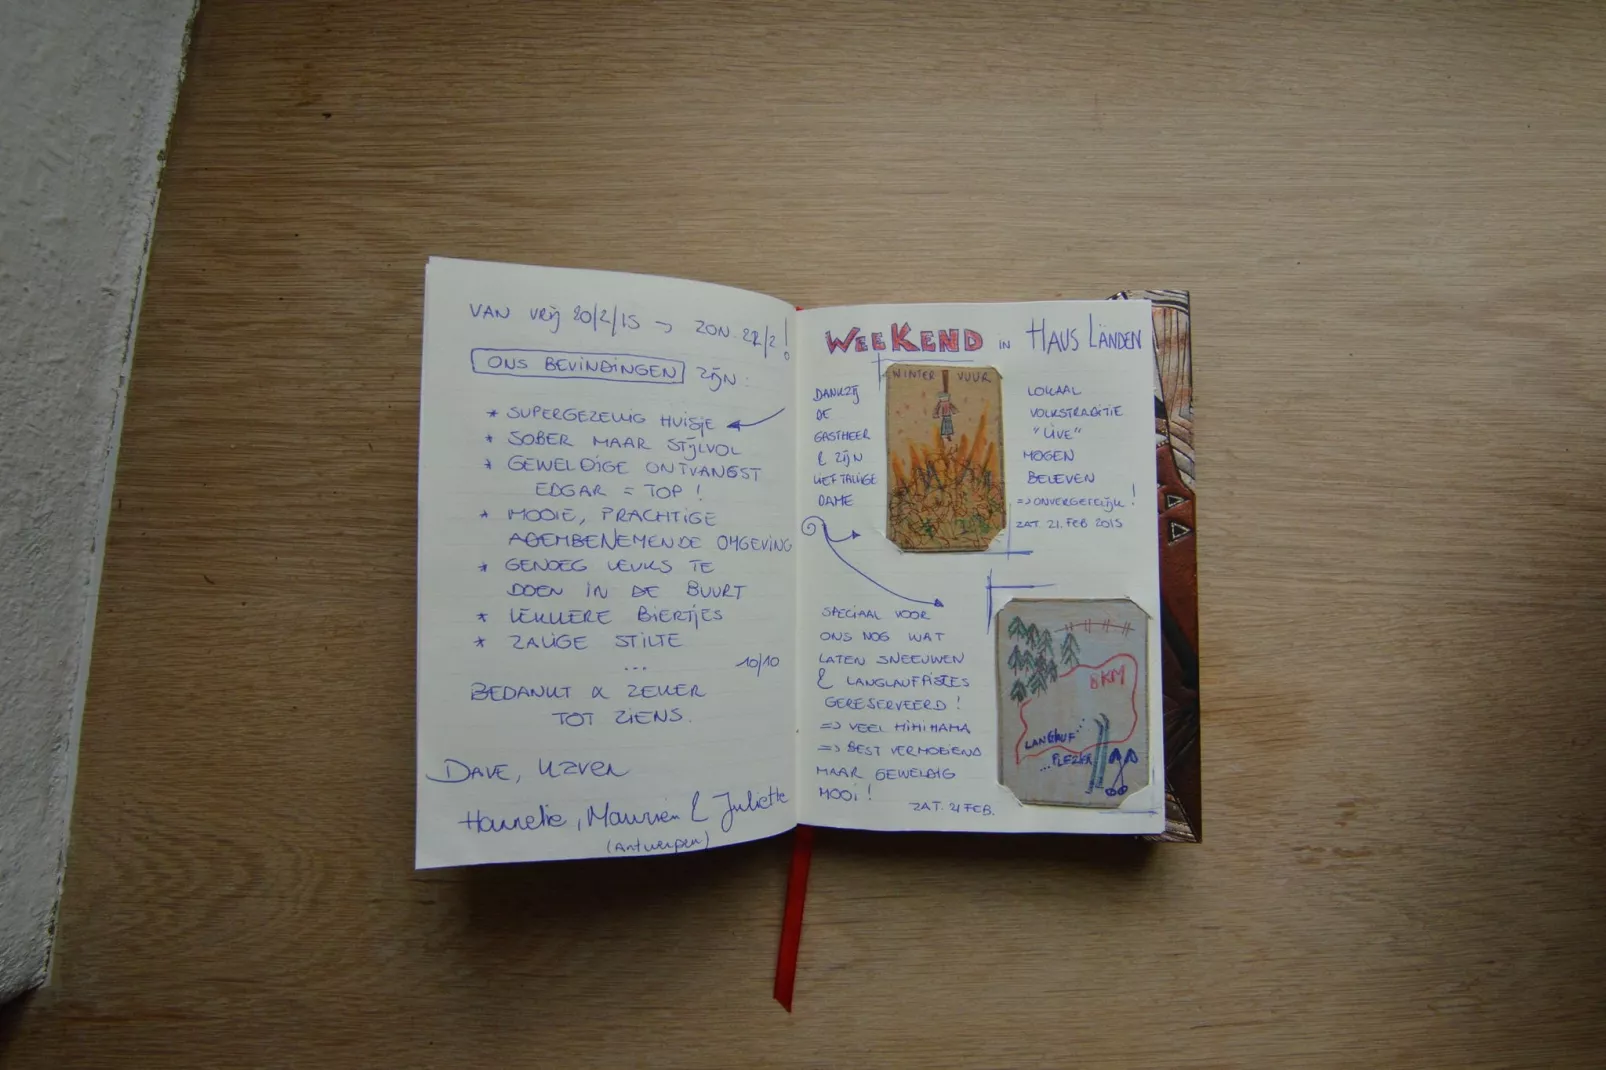 VAN VRIJ 20/2/15 → ZON 22/2!
ONS BEVINDINGEN ZIJN:
* SUPERGEZELLIG HUISJE
* SOBER MAAR STIJLVOL
* GEWELDIGE ONTVANGST
EDGAR = TOP!
* MOOIE, PRACHTIGE
ADEMBENEMENDE OMGEVING
* GENOEG LEUKS TE
DOEN IN DE BUURT
* LEKKERE BIERTJES
* ZALIGE STILTE
... 10/10
BEDANKT & ZEKER
TOT ZIENS.
DAVE,
Hannelie, & Juliette
(Antwerpen)
WEEKEND IN HAUS LÄNDEN
DANKZIJ
DE
GASTHEER
& ZIJN
LIEFTALLIGE
DAME
WINTER VUUR
LOKAAL
VOLKSTRADITIE
"LIVE"
MOGEN
BELEVEN
=> ONVERGETELIJK!
ZAT. 21. FEB 2015
SPECIAAL VOOR
ONS NOG WAT
LATEN SNEEUWEN
& LANGLAUFPISTES
GERESERVEERD!
=> VEEL MIHIHAHA
=> BEST VERMOEIEND
MAAR GEWELDIG
MOOI!
ZAT. 21 FEB.
8KM
LANGLAUF...
...PLEZIER